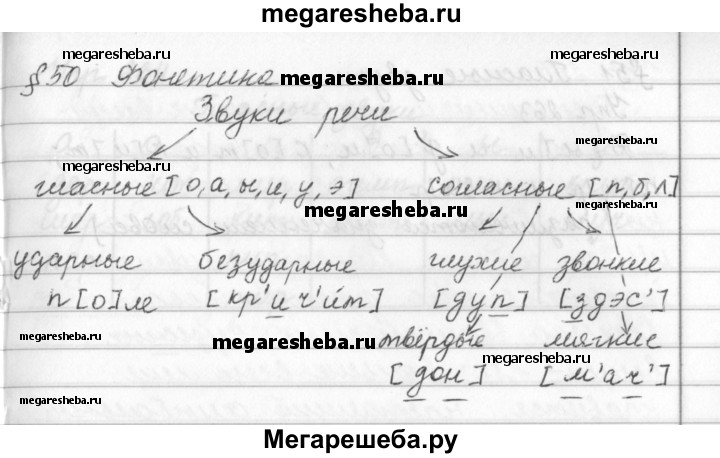 megaresheba.ru
megaresheba.ru megaresheba.ru
§ 50 Фонетика megaresheba.ru
Звуки речи
megaresheba.ru megaresheba.ru
гласные [о, а, ы, и, у, э] согласные [п, б, л]
megaresheba.ru
ударные безударные глухие звонкие
п[о]ле [кр'ич'и́т] [дуп] [здэс']
megaresheba.ru твёрдые мягкие
megaresheba.ru
[дон] [м'ач']
megaresheba.ru megaresheba.ru
Мегарешеба.ру